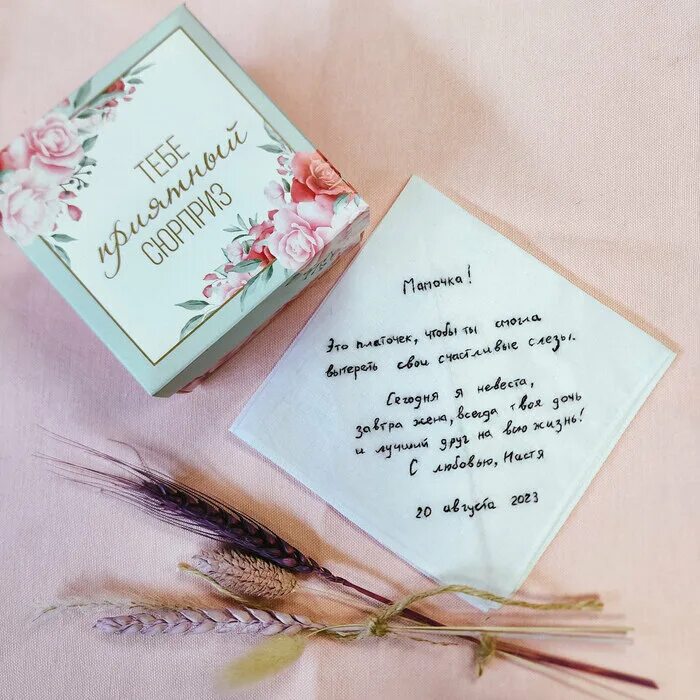 ТЕБЕ
приятный
СЮРПРИЗ
Мамочка!
Это платочек, чтобы ты смогла
вытереть свои счастливые слезы.
Сегодня я невеста,
завтра жена, всегда твоя дочь
и лучший друг на всю жизнь!
С любовью, Настя
20 августа 2023